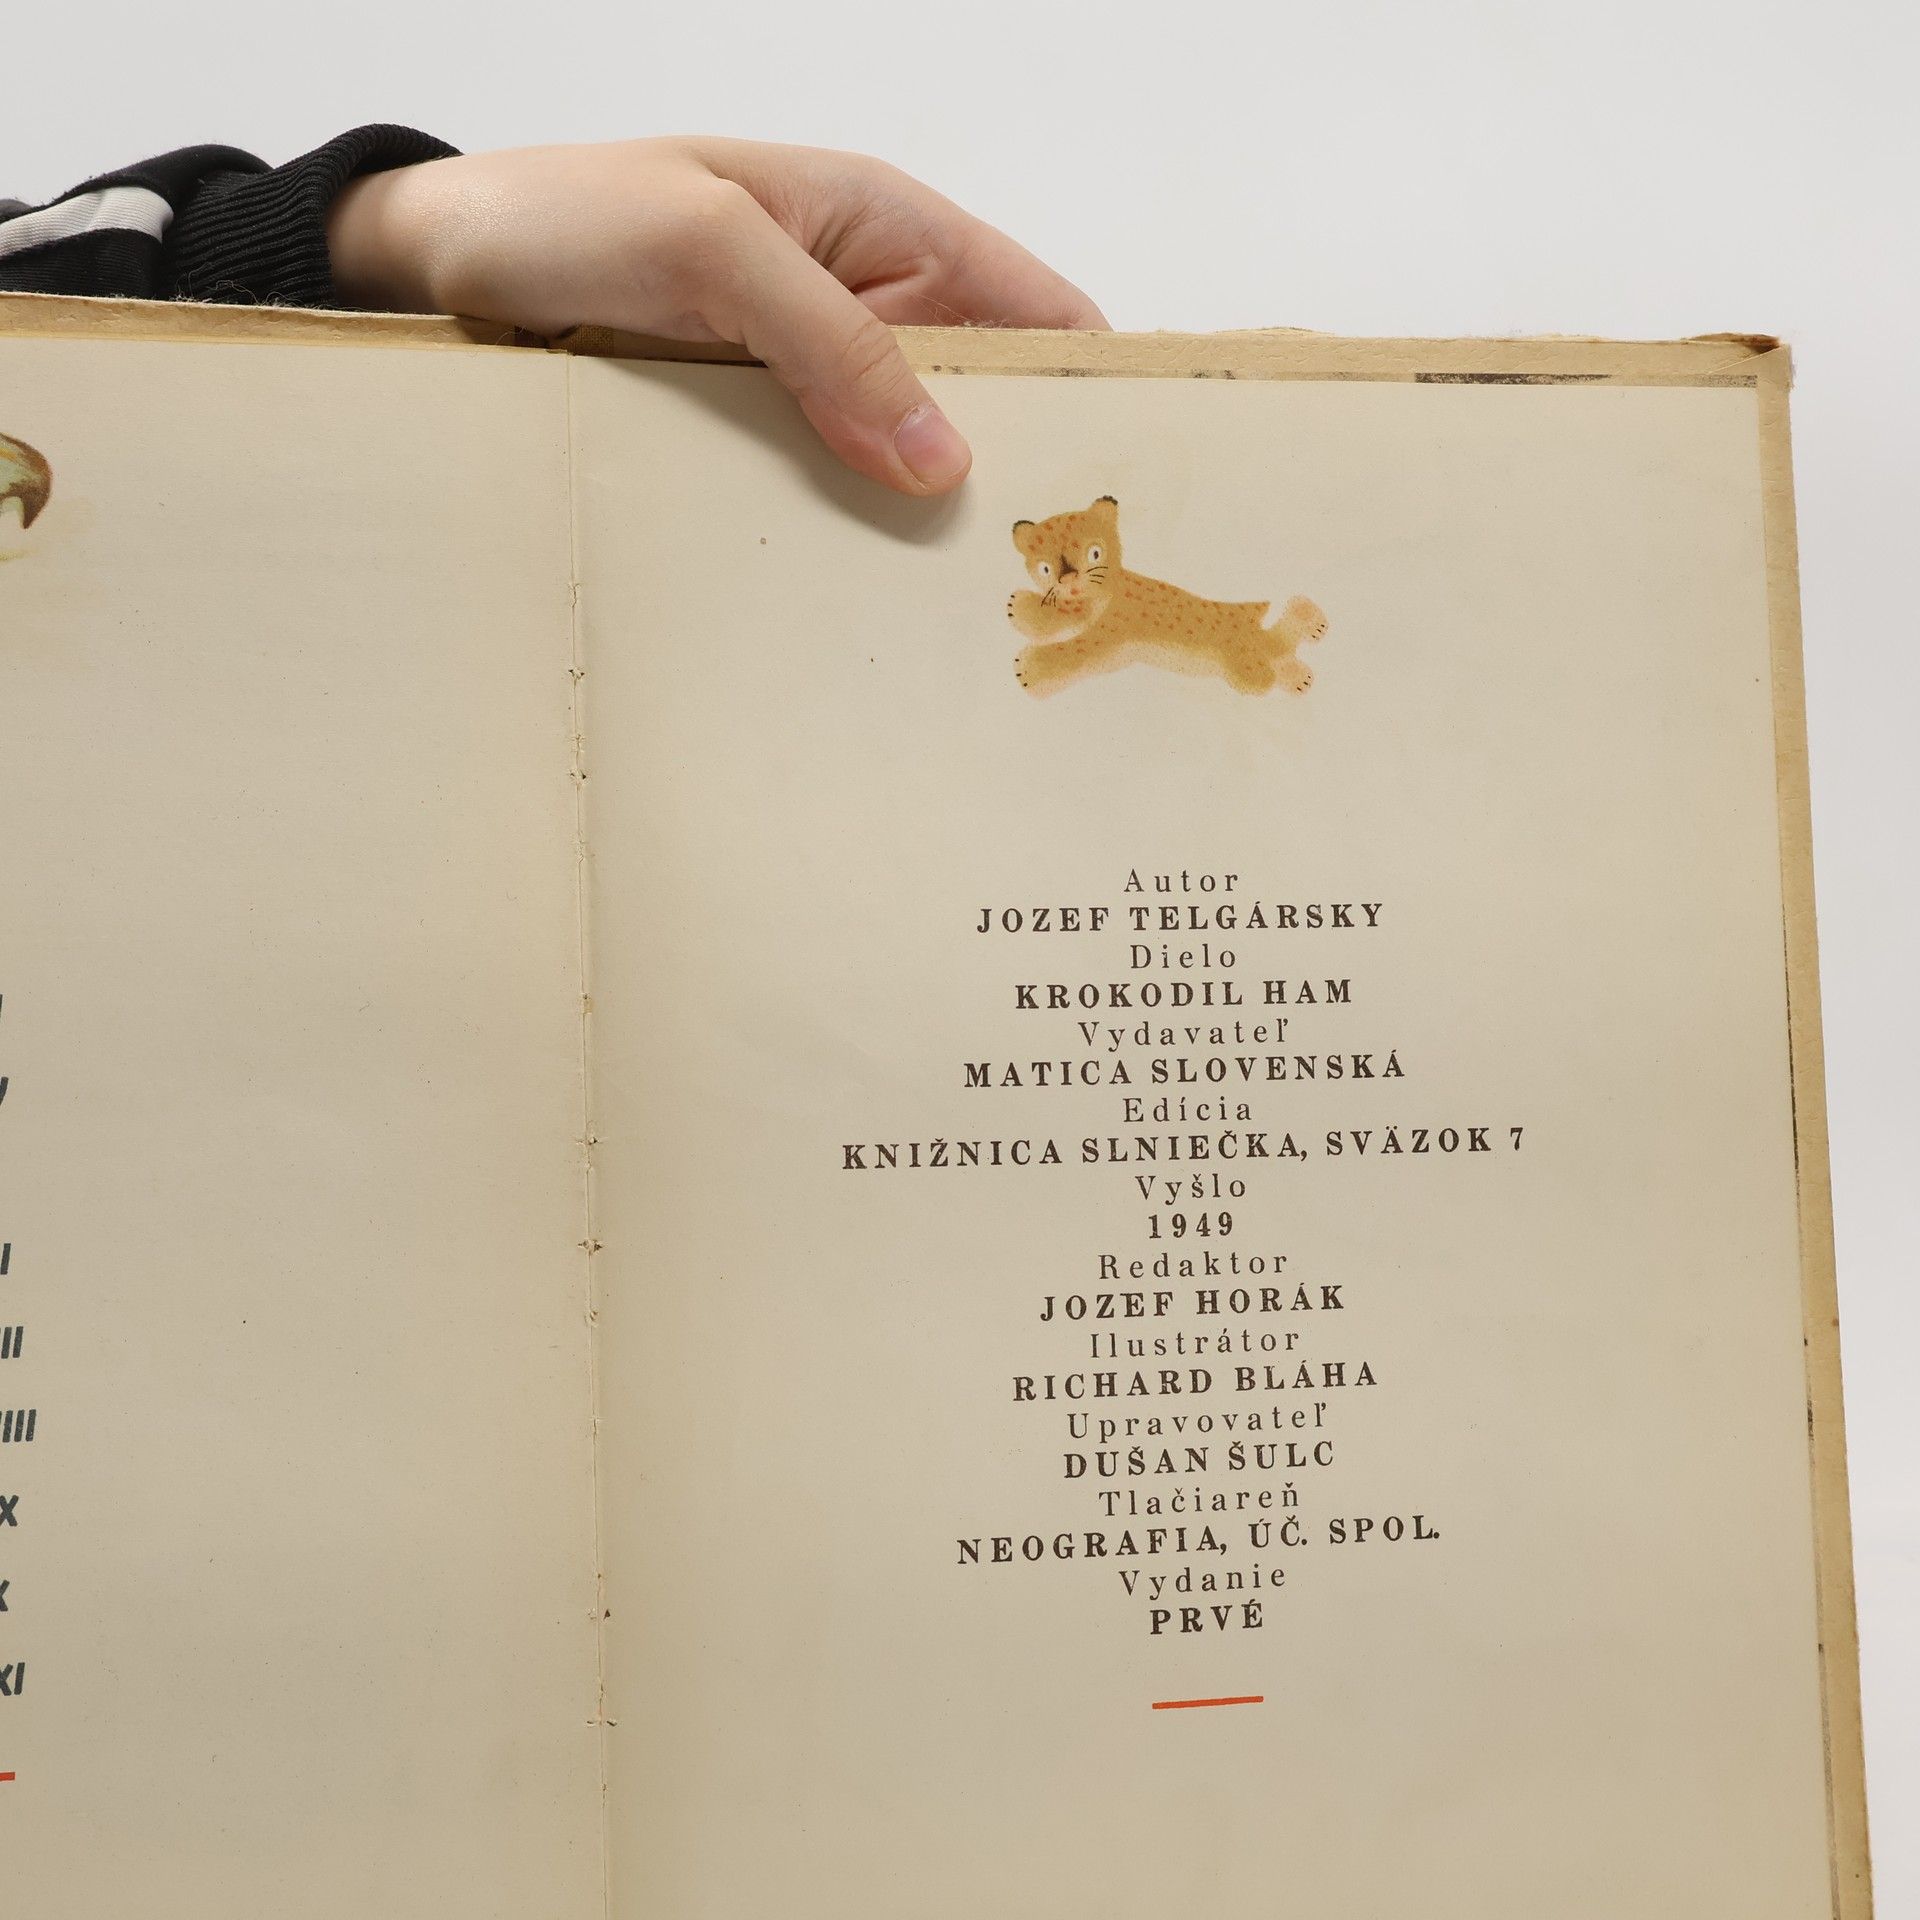 Autor
JOZEF TELGÁRSKY
Dielo
KROKODIL HAM
Vydavateľ
MATICA SLOVENSKÁ
Edícia
KNIŽNICA SLNIEČKA, SVÄZOK 7
Vyšlo
1949
Redaktor
JOZEF HORÁK
Ilustrátor
RICHARD BLÁHA
Upravovateľ
DUŠAN ŠULC
Tlačiareň
NEOGRAFIA, ÚČ. SPOL.
Vydanie
PRVÉ